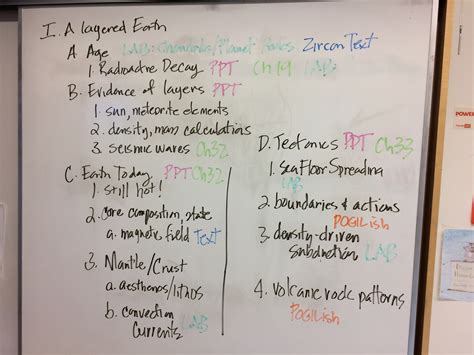 I. A layered Earth
A. Age LAB: Zircon Text
1. Radioactive Decay PPT Ch 19 LAB
B. Evidence of layers PPT
1. sun, meteorite elements
2. density, mass calculations
3. seismic waves Ch32
C. Earth Today PPT Ch32
1. still hot!
2. core composition, state
a. magnetic field Text
3. Mantle/Crust
a. aesthenos/lithos
b. convection currents LAB
D. Tectonics PPT Ch33
1. Sea Floor Spreading
LAB
2. boundaries & actions
POGILish
3. density-driven
subduction LAB
4. volcanic rock patterns
POGILish
POWER